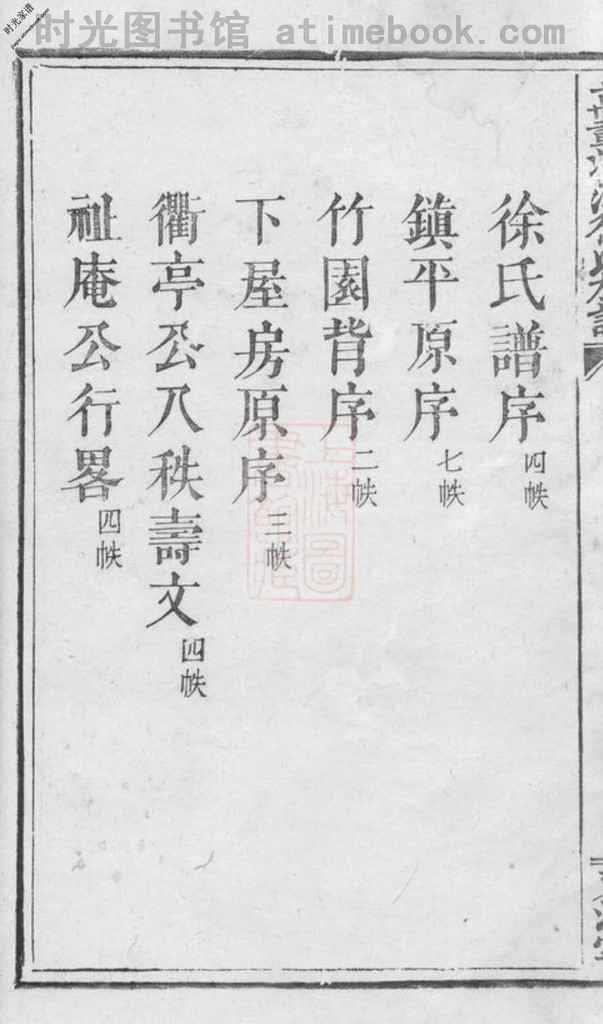 时光图书馆 atimebook.com
时光家谱
徐氏譜序 四帙
鎮平原序 七帙
竹園背序 二帙
下屋房原序 三帙
衢亭公八秩壽文 四帙
祉庵公行畧 四帙